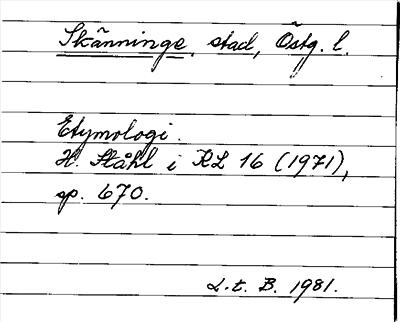 Skänninge, stad, Östg. l.
Etymologi.
H. Ståhl i RL 16 (1971),
sp. 670.
L.t. B. 1981.